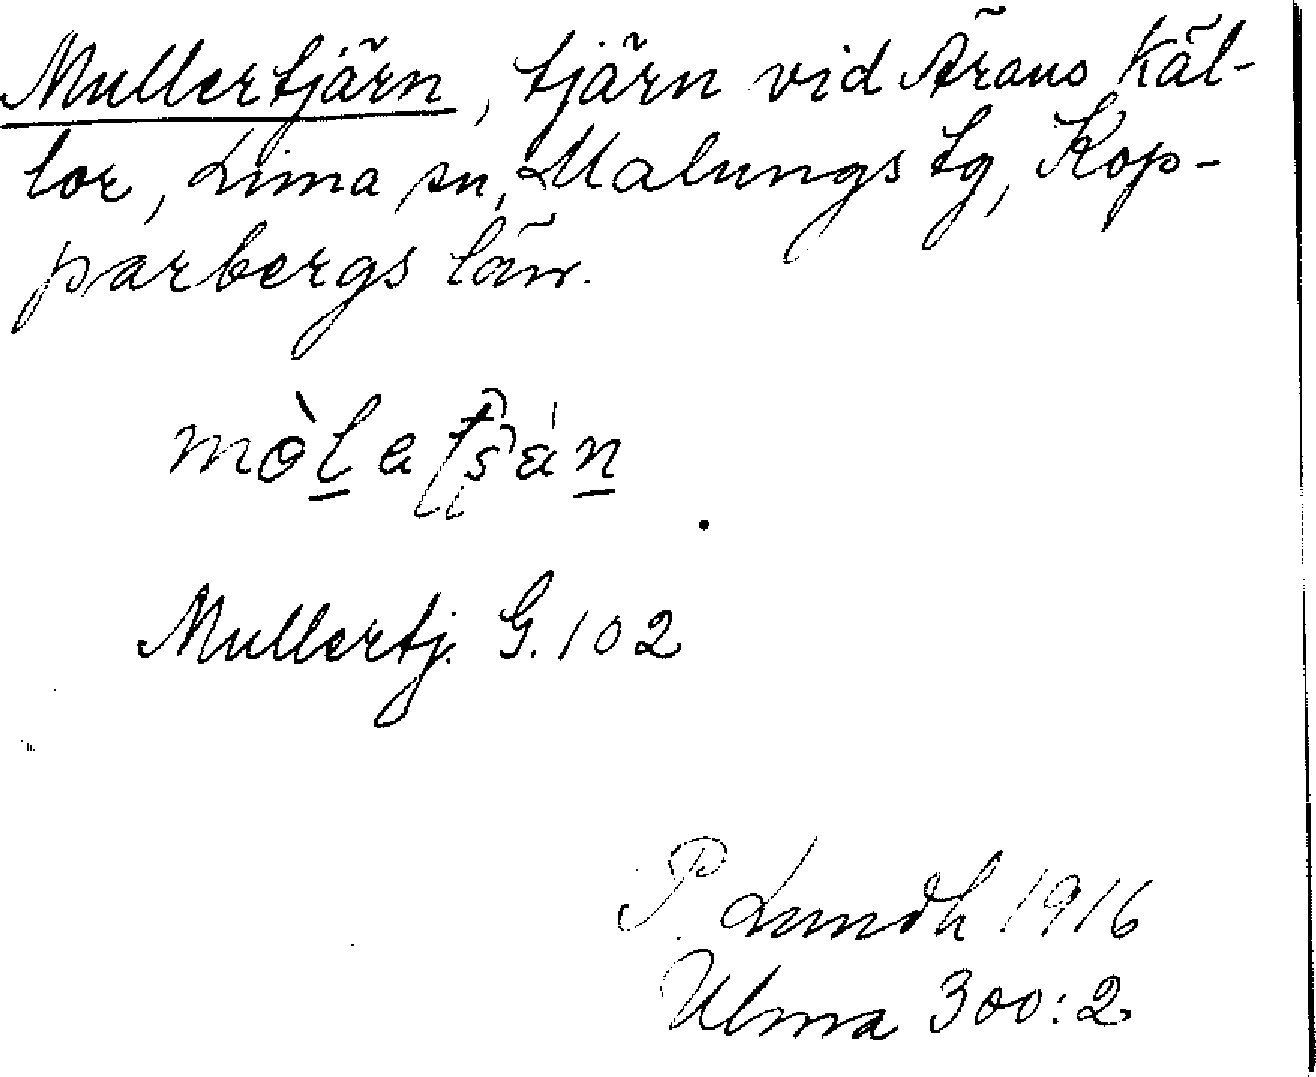 Mullertjärn, tjärn vid Ärans Käl-
lor, Lima sn, Malungs tg, Kop-
parbergs län.
Mullertj. G. 102
P. Lundh 1916
Ulma 300:2